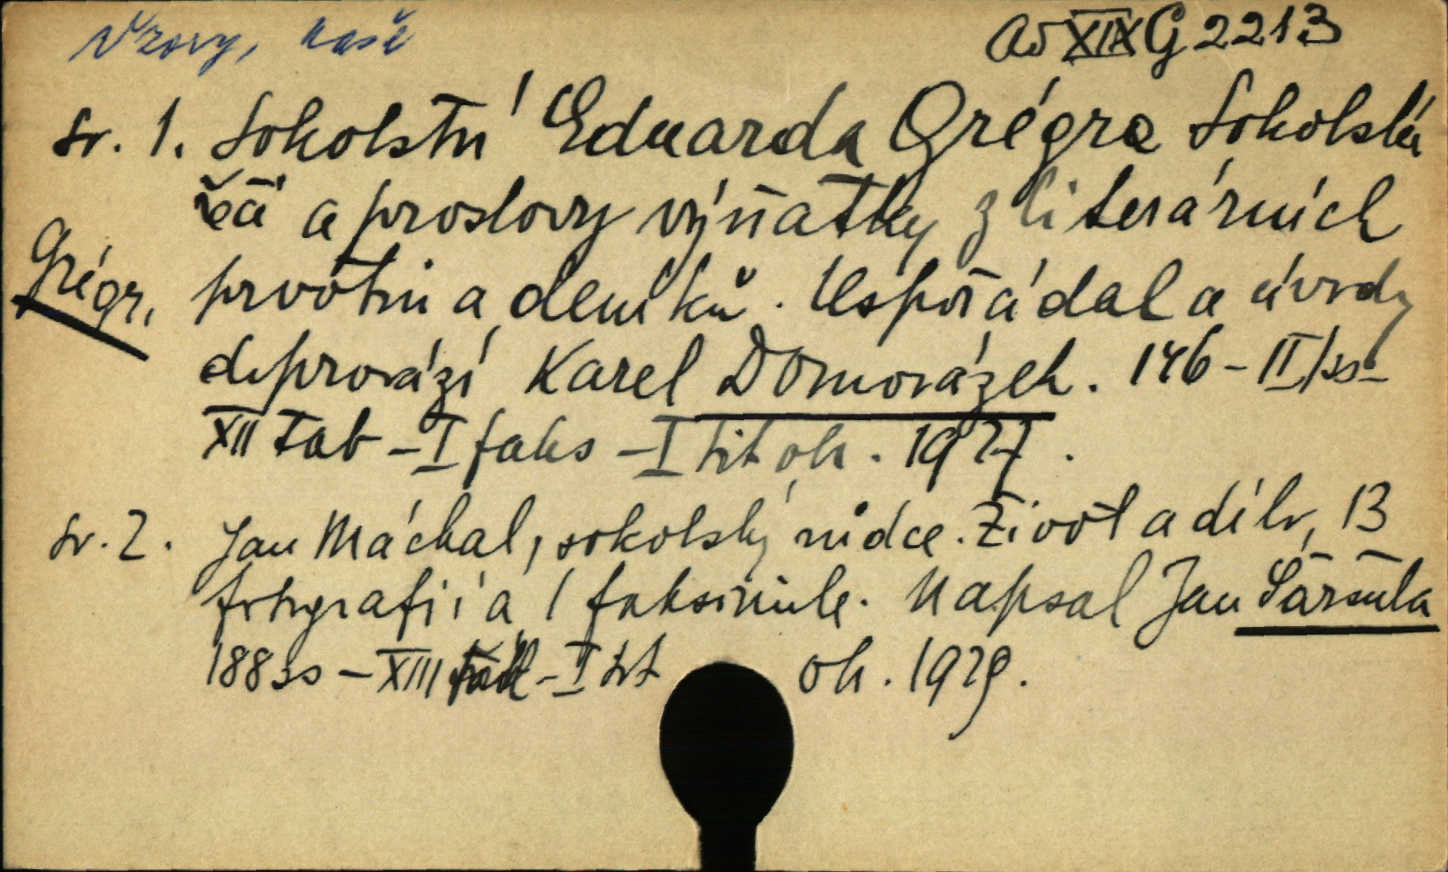 Vzory, naše
Ad XIX G 2213
sv. 1. Sokolství Eduarda Grégra Sokolská
řeč a proslovy výňatky z literárních
Grégr,
prvotin a deníků. Uspořádal a úvody
doprovází Karel Domorázek. 146 - II/ss -
XII tab - I faks - I tit ob. 1927.
sv. 2. Jan Máchal, sokolský vůdce. Život a dílo, 13
fotografií a 1 faksimile. Napsal Jan
188 ss - XIII - I tit ob. 1929.